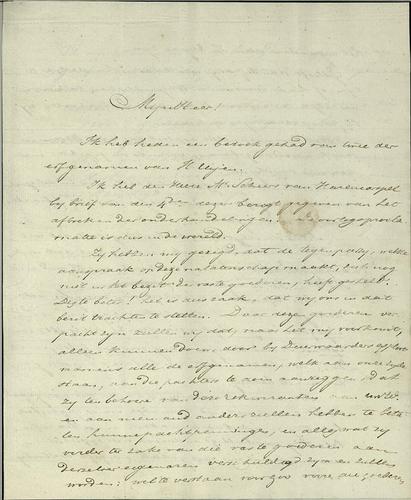 Mijnheer!
Ik heb heden een bezoek gehad van twee der
erfgenamen van
Ik heb den Heere Mr. Scheers van Harencarspel
bij brief van den 4den dezer berigt gegeven van het
afbreken der onderhandelingen.
matie is dus in de wereld.
Zij hebben mij gezegd, dat de tegenpartij, welke
aanspraak op deze nalatenschap maakt, zich nog
niet in het bezit der vaste goederen heeft gesteld.
Des te beter! het is dus zaak, dat wij ons in dat
bezit trachten te stellen. Daar deze goederen ver-
pacht zijn zullen wij dat, naar het mij voorkomt,
alleen kunnen doen, door bij Deurwaarders exploit
namens alle de erfgenamen, welk aan onze zijde
staan, aan de pachters te doen aanzeggen, dat
zij ten behoeve van deze rekwiranten
en aan niemand anders zullen hebben te beta-
len hunne pachtpenningen, en alles wat zij
verder ter zake van die vaste goederen aan
derzelver eigenaren verschuldigd zijn en zullen
worden; wel te verstaan voor zoo verre die goederen